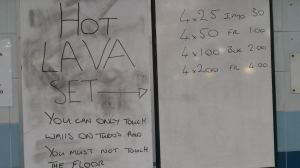 HOT
LAVA
SET
YOU CAN ONLY TOUCH
WALLS ON TURNS AND
YOU MUST NOT TOUCH
THE FLOOR
4 x 25 IMMO 30
4 x 50 FR 1.00
4 x 100 BUK 2.00
4 x 200 FR 4.00